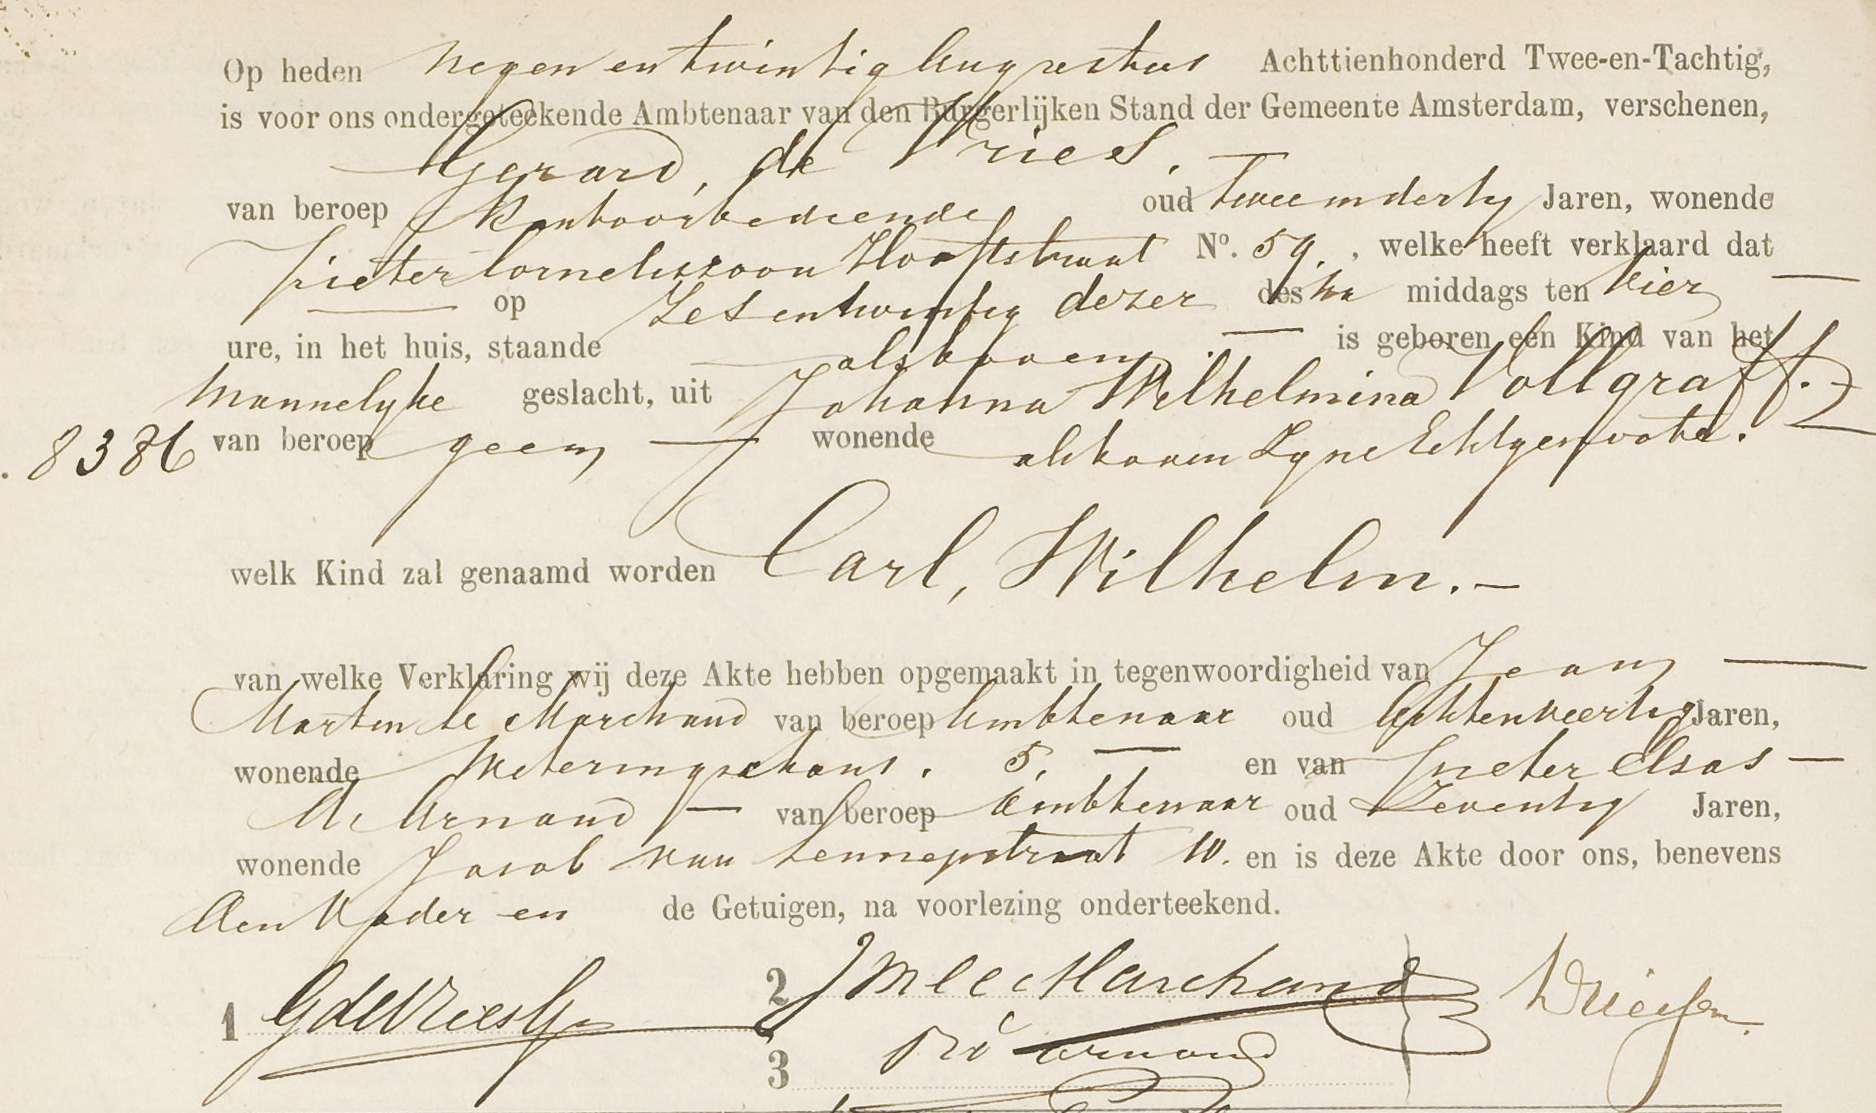 Op heden negen en twintig Augustus Achttienhonderd Twee-en-Tachtig,
is voor ons ondergeteekende Ambtenaar van den Burgerlijken Stand der Gemeente Amsterdam, verschenen,
Gerard, de Vries. —
van beroep Kantoorbediende oud twee en dertig Jaren, wonende
Pieter Corneliszoon Hooftstraat No. 59. , welke heeft verklaard dat
— op Zes en twintig dezer des na middags ten vier —
ure, in het huis, staande alsboven. — is geboren een Kind van het
Mannelijke geslacht, uit Johanna Wilhelmina Vollgraff.
8386 van beroep geen — wonende alsboven Zyne Echtgenoote.
welk Kind zal genaamd worden Carl, Wilhelm. —
van welke Verklaring wij deze Akte hebben opgemaakt in tegenwoordigheid van Jean —
Marten le Marchand van beroep Ambtenaar oud Achtenveertig Jaren,
wonende Weteringschans. 5. — en van Pieter Elsas —
d'Arnaud — van beroep Ambtenaar oud Zeventig Jaren,
wonende Jacob van Lennepstraat 10. en is deze Akte door ons, benevens
den Vader en de Getuigen, na voorlezing onderteekend.
1 G de Vries Gz 2 J M le Marchand
3